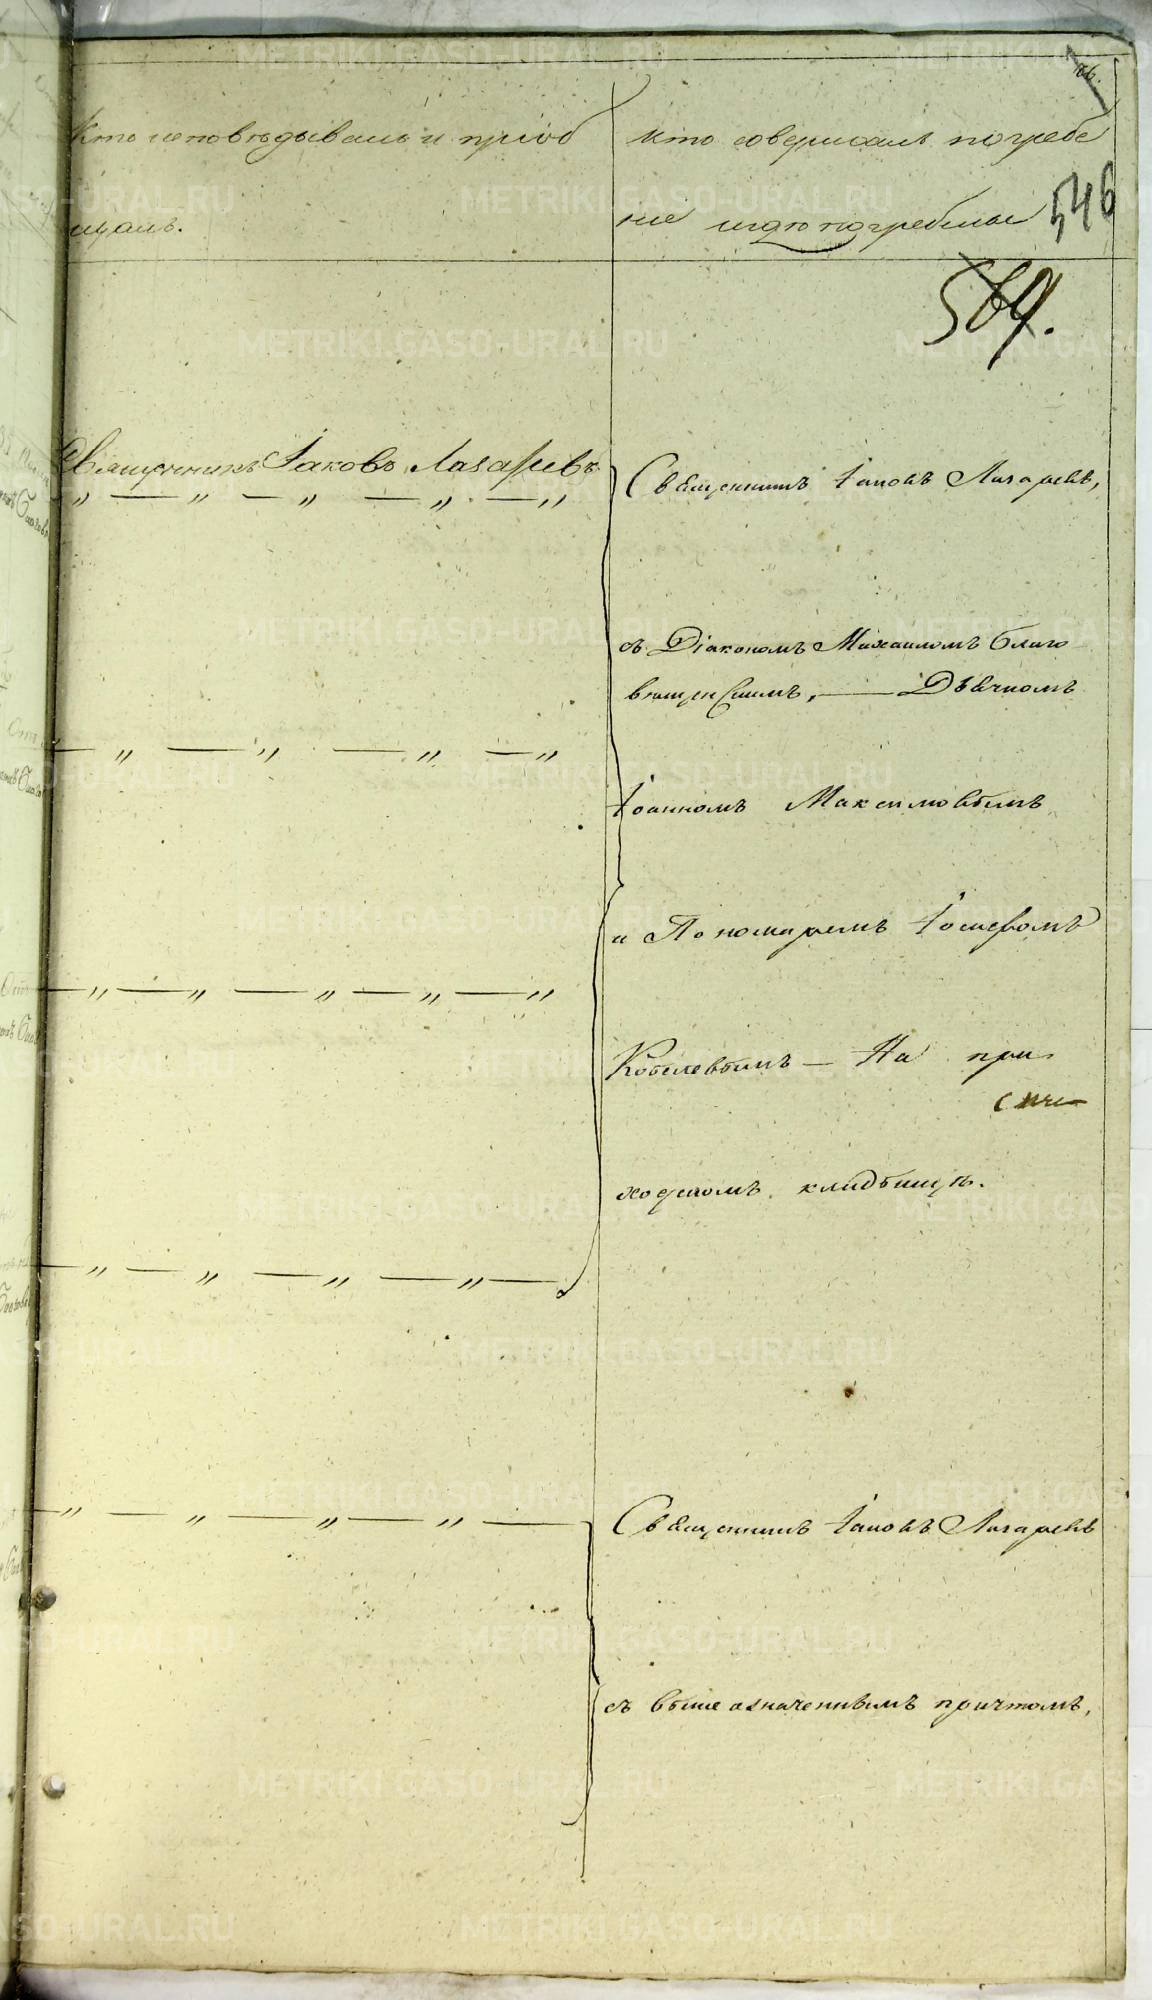 Кто исповѣдывалъ и пріоб
щалъ.
кто совершалъ погребе
ніе и гдѣ погребены
546
569.
Священникъ Іаковъ Лазаревъ
Священникъ Іаковъ Лазаревъ,
съ Діакономъ Михаиломъ Благо
вѣщенскимъ, — Дьячкомъ
Іоанномъ Максимовымъ
и Пономаремъ Іосифомъ
Кобелевымъ — На при
ходскомъ кладбищѣ.
Священникъ Іаковъ Лазаревъ
съ выше означеннымъ причтомъ,
METRIKI.GASO-URAL.RU